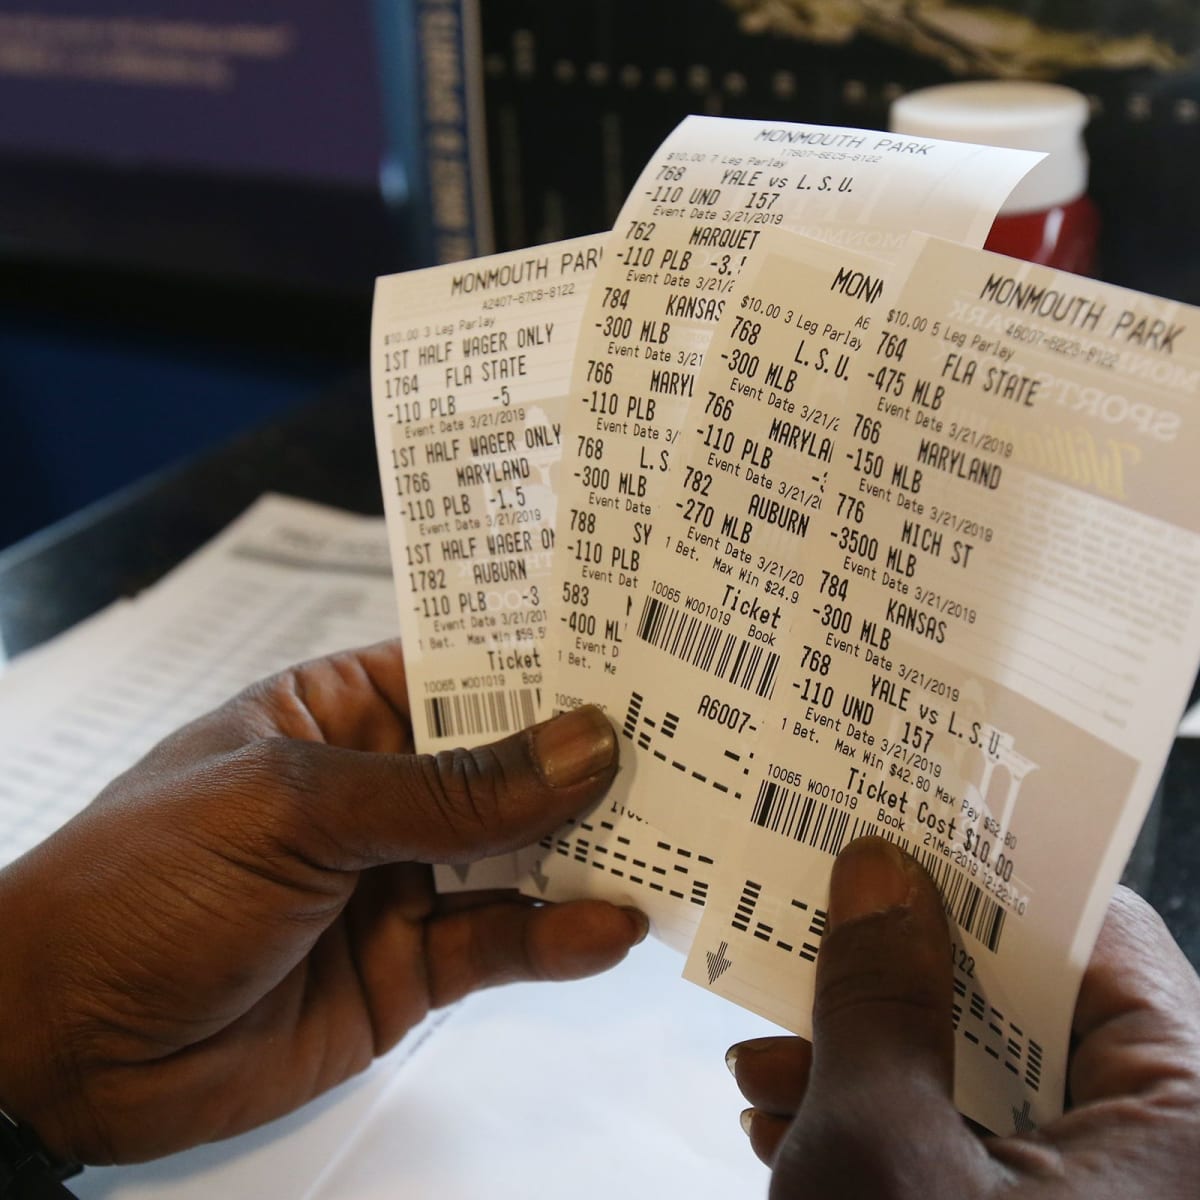 MONMOUTH PARK
A2407-67C8-8122
$10.00 3 Leg Parlay
1ST HALF WAGER ONLY
1764 FLA STATE
-110 PLB -5
Event Date 3/21/2019
1ST HALF WAGER ONLY
1766 MARYLAND
-110 PLB -1.5
Event Date 3/21/2019
1ST HALF WAGER ON
1782 AUBURN
-110 PLB -3
Event Date 3/21/201
1 Bet. Max Win $59.5
Ticket
10065 W001019 Book
MONMOUTH PARK
17807-6EC5-8122
$10.00 7 Leg Parlay
768 YALE vs L.S.U.
-110 UND 157
Event Date 3/21/2019
762 MARQUET
-110 PLB -3.5
Event Date 3/21/2
784 KANSAS
-300 MLB
Event Date 3/21
766 MARYL
-110 PLB
Event Date 3/
768 L.S
-300 MLB
Event Date
788 SY
-110 PLB
Event Dat
583
-400 ML
Event D
1 Bet. Ma
MONM
A6
$10.00 3 Leg Parlay
768 L.S.U.
-300 MLB
Event Date 3/21/2
766 MARYLA
-110 PLB
Event Date 3/21/2
782 AUBURN
-270 MLB
Event Date 3/21/20
1 Bet. Max Win $24.9
Ticket
10065 W001019 Book
A6007-
MONMOUTH PARK
46007-6225-8122
$10.00 5 Leg Parlay
764 FLA STATE
-475 MLB
Event Date 3/21/2019
766 MARYLAND
-150 MLB
Event Date 3/21/2019
776 MICH ST
-3500 MLB
Event Date 3/21/2019
784 KANSAS
-300 MLB
Event Date 3/21/2019
768 YALE vs L.S.U.
-110 UND 157
Event Date 3/21/2019
1 Bet. Max Win $42.80 Max Pay $52.80
Ticket Cost $10.00
10065 W001019 Book 21Mar2019 12:22:10
122